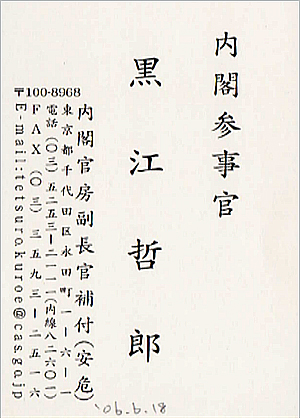 内閣参事官
黒江哲郎
内閣官房副長官補付(安危)
東京都千代田区永田町一—六—一
電話(〇三)五二五三—二一一一(内線八二六〇一)
FAX(〇三)三五九三—二五一六
〒100-8968
E-mail:tetsuro.kuroe@cas.go.jp
'06.6.18